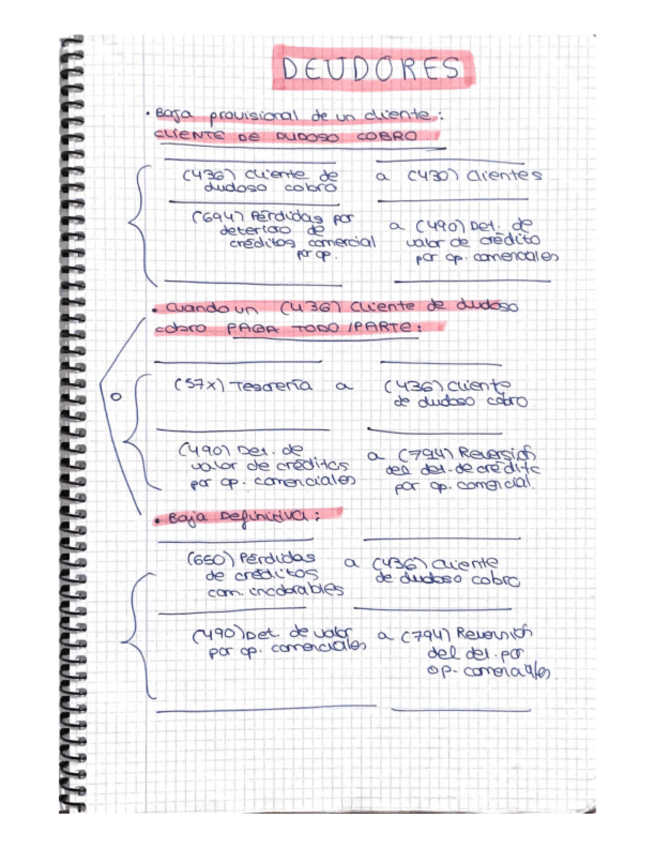 DEUDORES
• Baja provisional de un cliente:
CLIENTE DE DUDOSO COBRO
(436) Cliente de dudoso cobro a (430) Clientes
(694) Pérdidas por deterioro de créditos comercial por op. a (490) Det. de valor de crédito por op. comerciales
• Cuando un (436) Cliente de dudoso
cobro PAGA TODO/PARTE:
o
(57x) Tesorería a (436) Cliente de dudoso cobro
(490) Det. de valor de créditos por op. comerciales a (794) Reversión del det. de crédito por op. comercial.
• Baja Definitiva:
(650) Pérdidas de créditos com. incobrables a (436) Cliente de dudoso cobro
(490) Det. de valor por op. comerciales a (794) Reversión del det. por op. comerciales